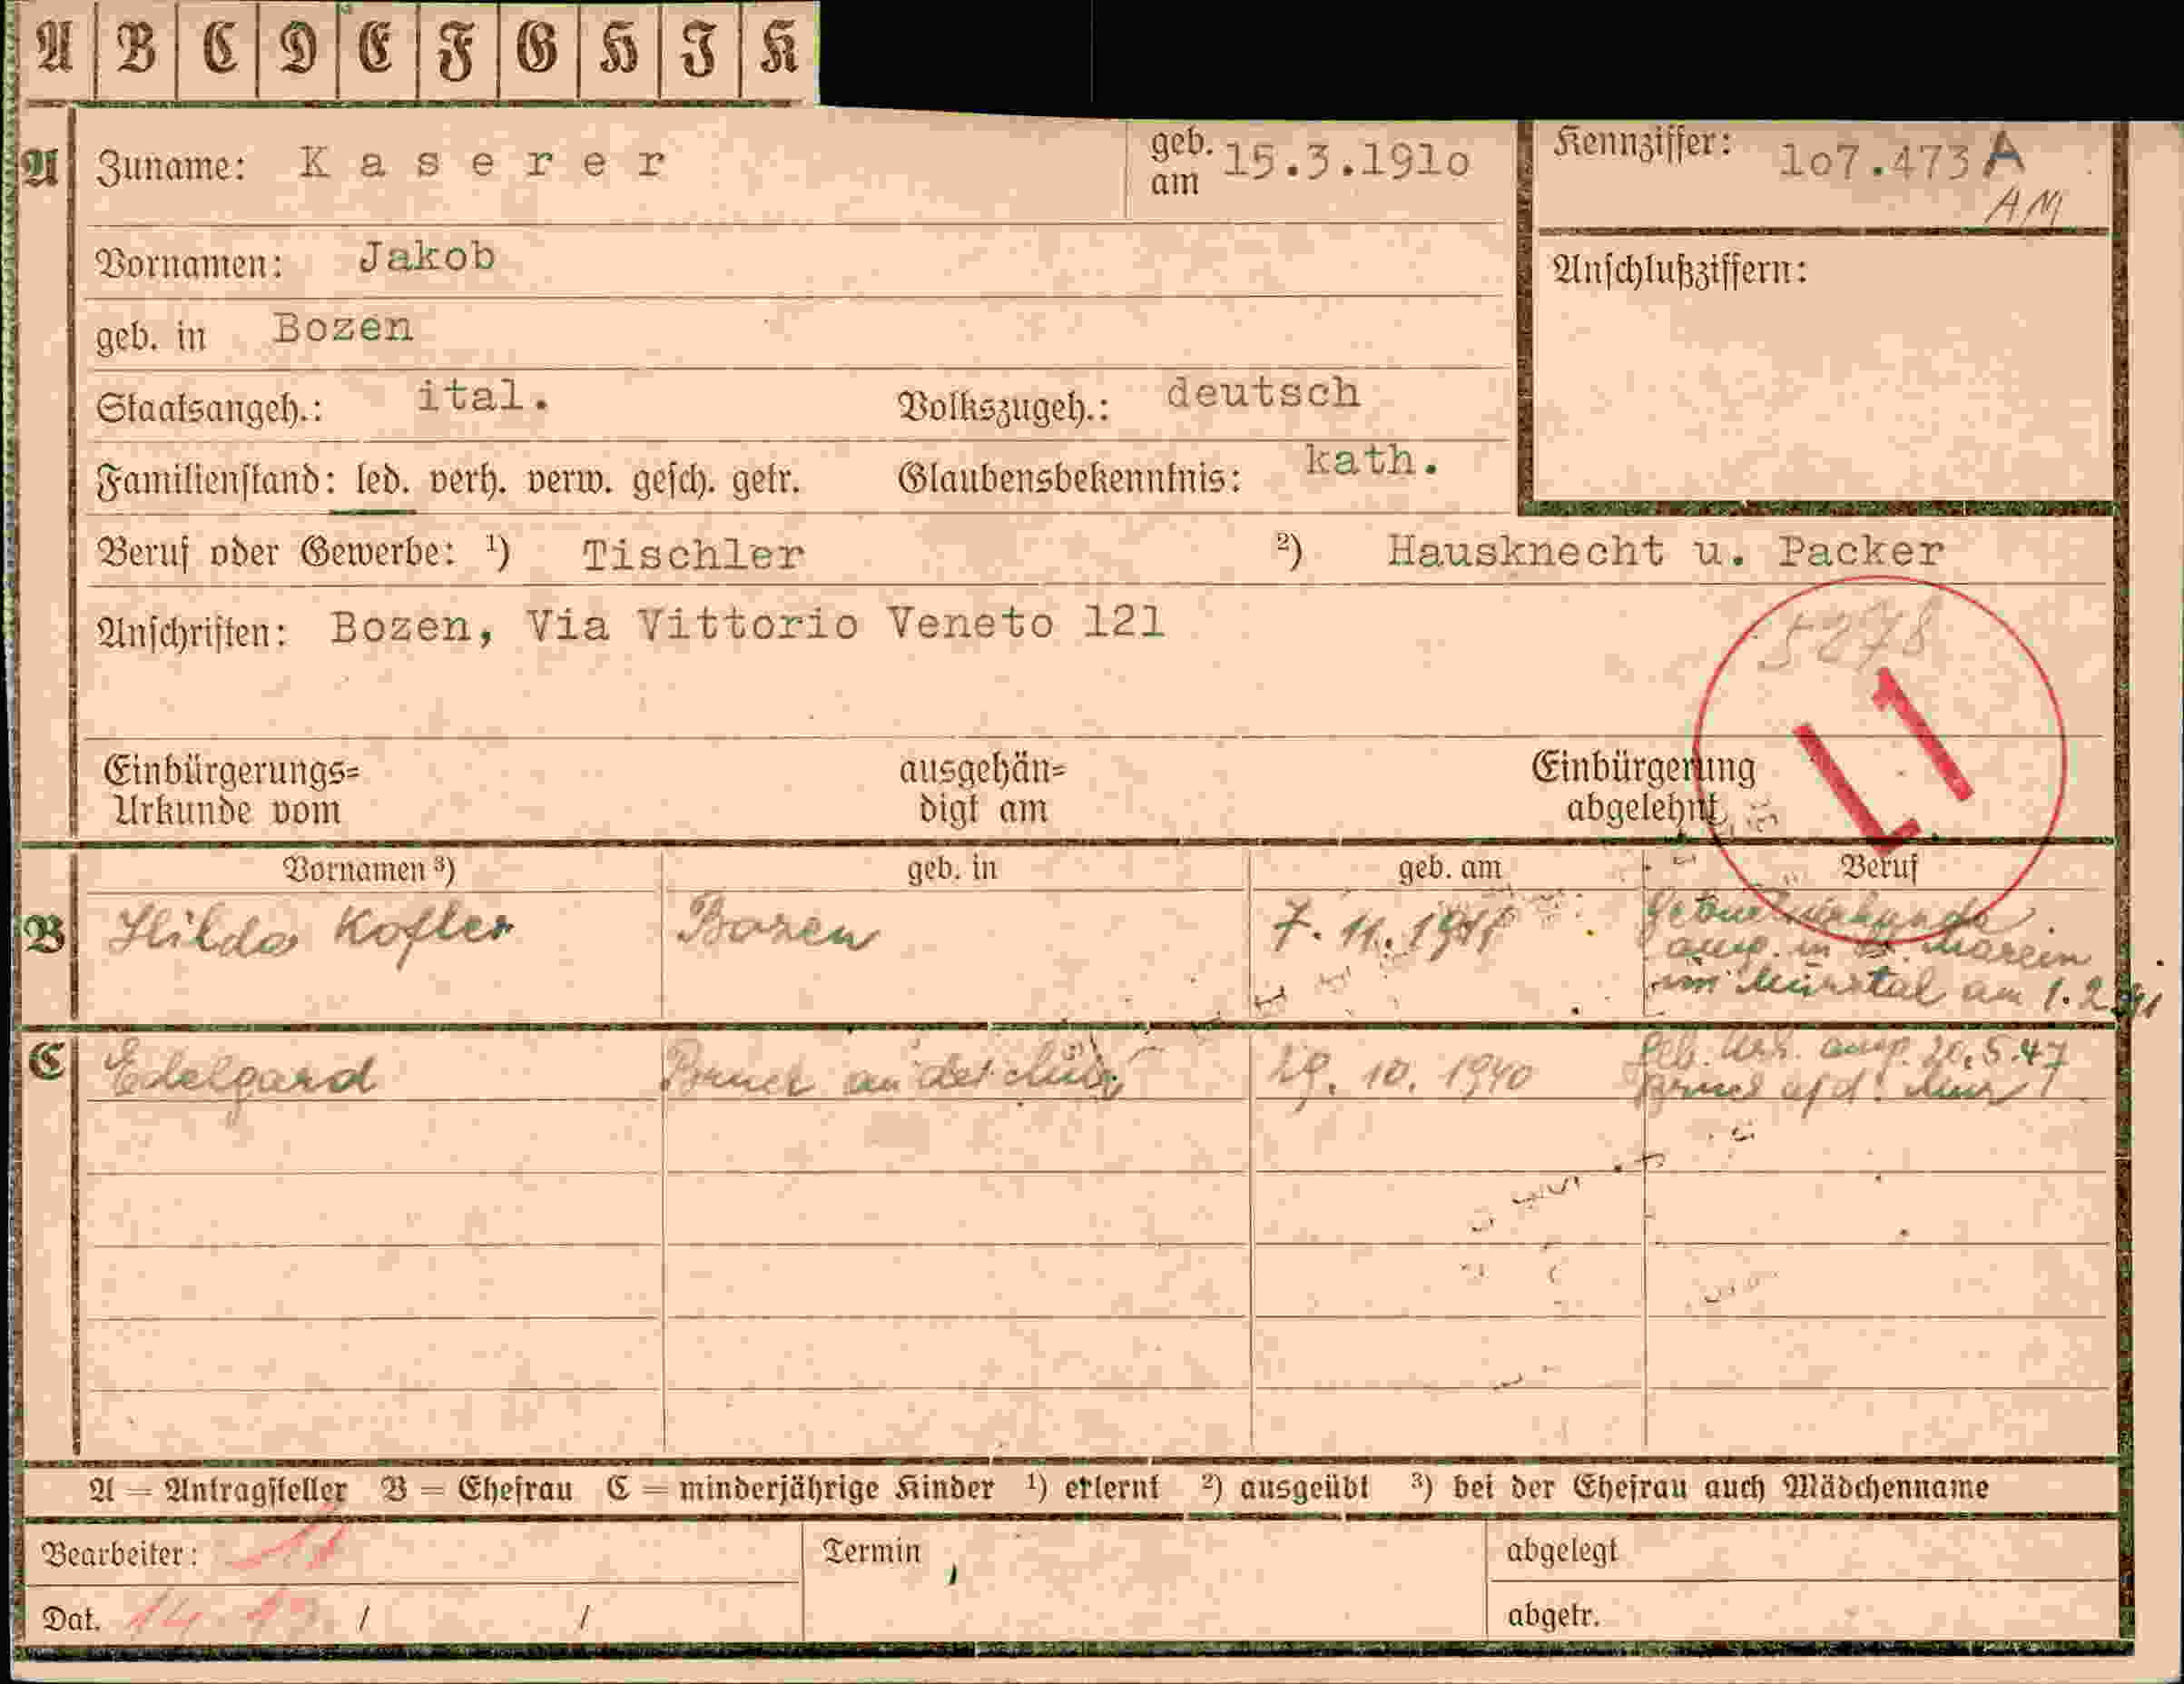 A B C D E F G H I K
A Zuname: Kaserer geb. am 15.3.1910 Kennziffer: 107.473 A
AM
Vornamen: Jakob
Anschlußziffern:
geb. in Bozen
Staatsangeh.: ital. Volkszugeh.: deutsch
Familienstand: led. verh. verw. gesch. getr. Glaubensbekenntnis: kath.
Beruf oder Gewerbe: ¹) Tischler ²) Hausknecht u. Packer
Anschriften: Bozen, Via Vittorio Veneto 121
5278
11
Einbürgerungs= ausgehän= Einbürgerung
Urkunde vom digt am abgelehnt
Vornamen ³) geb. in geb. am Beruf
B Hilda Kofler Bozen 7. 11. Geburtsurkunde
ausg. in St. Marein
im Mürztal am 1. 2.
C Edelgard Bruck an der Mur 29. 10. 1940 Geb. Urk. ausg. 20. 5. 47
Bruck a/d. Mur
A = Antragsteller B = Ehefrau C = minderjährige Kinder ¹) erlernt ²) ausgeübt ³) bei der Ehefrau auch Mädchenname
Bearbeiter: Termin abgelegt
Dat. 14. / / abgetr.